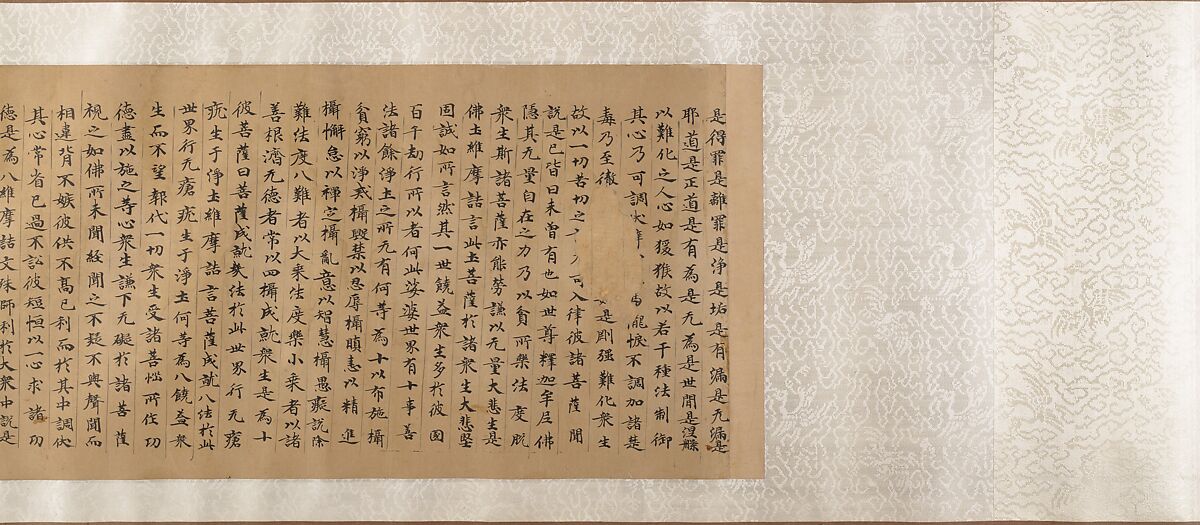 是得罪是離罪是淨是垢是有漏是无漏是
耶道是正道是有為是无為是世間是涅槃
以難化之人心如猨猴故以若干種法制御
其心乃可調伏 㦬悷不調加諸楚
毒乃至徹 是剛强難化衆生
故以一切苦切之 入律彼諸菩薩聞
說是已皆曰未曾有也如世尊釋迦牟尼佛
隱其无量自在之力乃以貧所樂法度脫
衆生斯諸菩薩亦能勞謙以无量大悲生是
佛土維摩詰言此土菩薩於諸衆生大悲堅
固誠如所言然其一世饒益衆生多於彼國
百千劫行所以者何此娑婆世界有十事善
法諸餘淨土之所无有何等為十以布施攝
貧窮以淨戒攝毀禁以忍辱攝瞋恚以精進
攝懈怠以禪定攝亂意以智慧攝愚癡說除
難法度八難者以大乘法度樂小乘者以諸
善根濟无德者常以四攝成就衆生是為十
彼菩薩曰菩薩成就㡬法於此世界行无瘡
疣生于淨土維摩詰言菩薩成就八法於此
世界行无瘡疣生于淨土何等為八饒益衆
生而不望報代一切衆生受諸苦惱所作功
德盡以施之等心衆生謙下无礙於諸菩薩
視之如佛所未聞經聞之不疑不與聲聞而
相違背不嫉彼供不高己利而於其中調伏
其心常省己過不訟彼短恒以一心求諸功
德是為八維摩詰文殊師利於大衆中說是